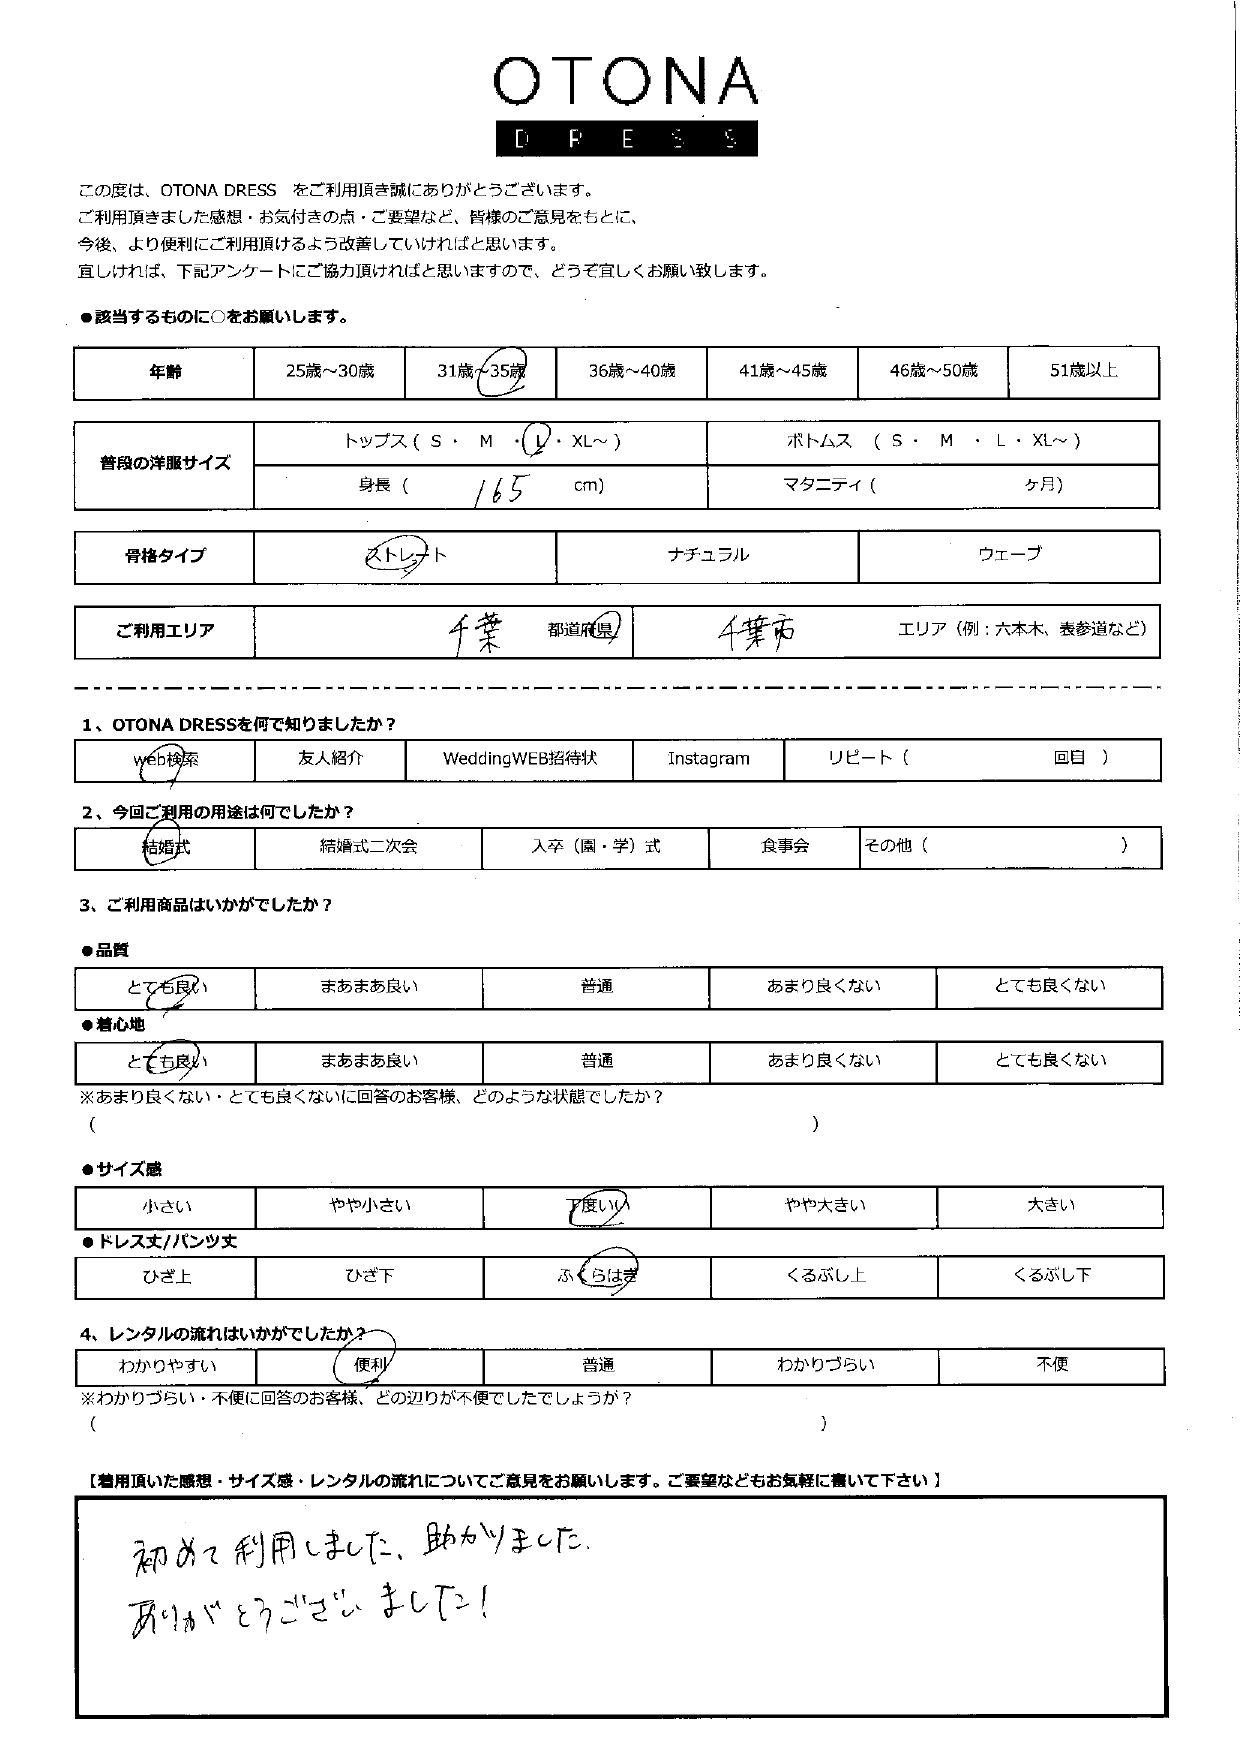 OTONA
DRESS
この度は、OTONA DRESS をご利用頂き誠にありがとうございます。
ご利用頂きました感想・お気付きの点・ご要望など、皆様のご意見をもとに、
今後、より便利にご利用頂けるよう改善していければと思います。
宜しければ、下記アンケートにご協力頂ければと思いますので、どうぞ宜しくお願い致します。
●該当するものに○をお願いします。
年齢 25歳～30歳 31歳～35歳 36歳～40歳 41歳～45歳 46歳～50歳 51歳以上
普段の洋服サイズ トップス ( S ・ M ・ L ・ XL～ ) ボトムス ( S ・ M ・ L ・ XL～ )
身長 ( 165 cm) マタニティ ( ヶ月)
骨格タイプ ストレート ナチュラル ウェーブ
ご利用エリア 千葉 都道府県 千葉市 エリア（例：六本木、表参道など）
1、OTONA DRESSを何で知りましたか？
web検索 友人紹介 WeddingWEB招待状 Instagram リピート ( 回目 )
2、今回ご利用の用途は何でしたか？
結婚式 結婚式二次会 入卒（園・学）式 食事会 その他 ( )
3、ご利用商品はいかがでしたか？
●品質
とても良い まあまあ良い 普通 あまり良くない とても良くない
●着心地
とても良い まあまあ良い 普通 あまり良くない とても良くない
※あまり良くない・とても良くないに回答のお客様、どのような状態でしたか？
( )
●サイズ感
小さい やや小さい 丁度いい やや大きい 大きい
●ドレス丈/パンツ丈
ひざ上 ひざ下 ふくらはぎ くるぶし上 くるぶし下
4、レンタルの流れはいかがでしたか？
わかりやすい 便利 普通 わかりづらい 不便
※わかりづらい・不便に回答のお客様、どの辺りが不便でしたでしょうか？
( )
【着用頂いた感想・サイズ感・レンタルの流れについてご意見をお願いします。ご要望などもお気軽に書いて下さい】
初めて利用しました、助かりました.
ありがとうございました!